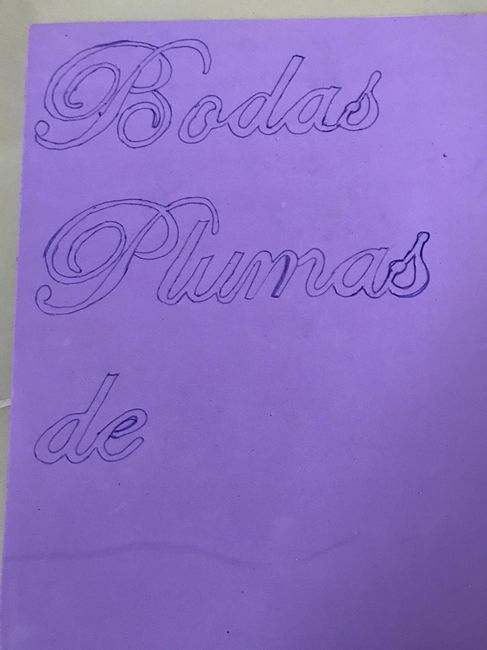 Bodas
Plumas
de